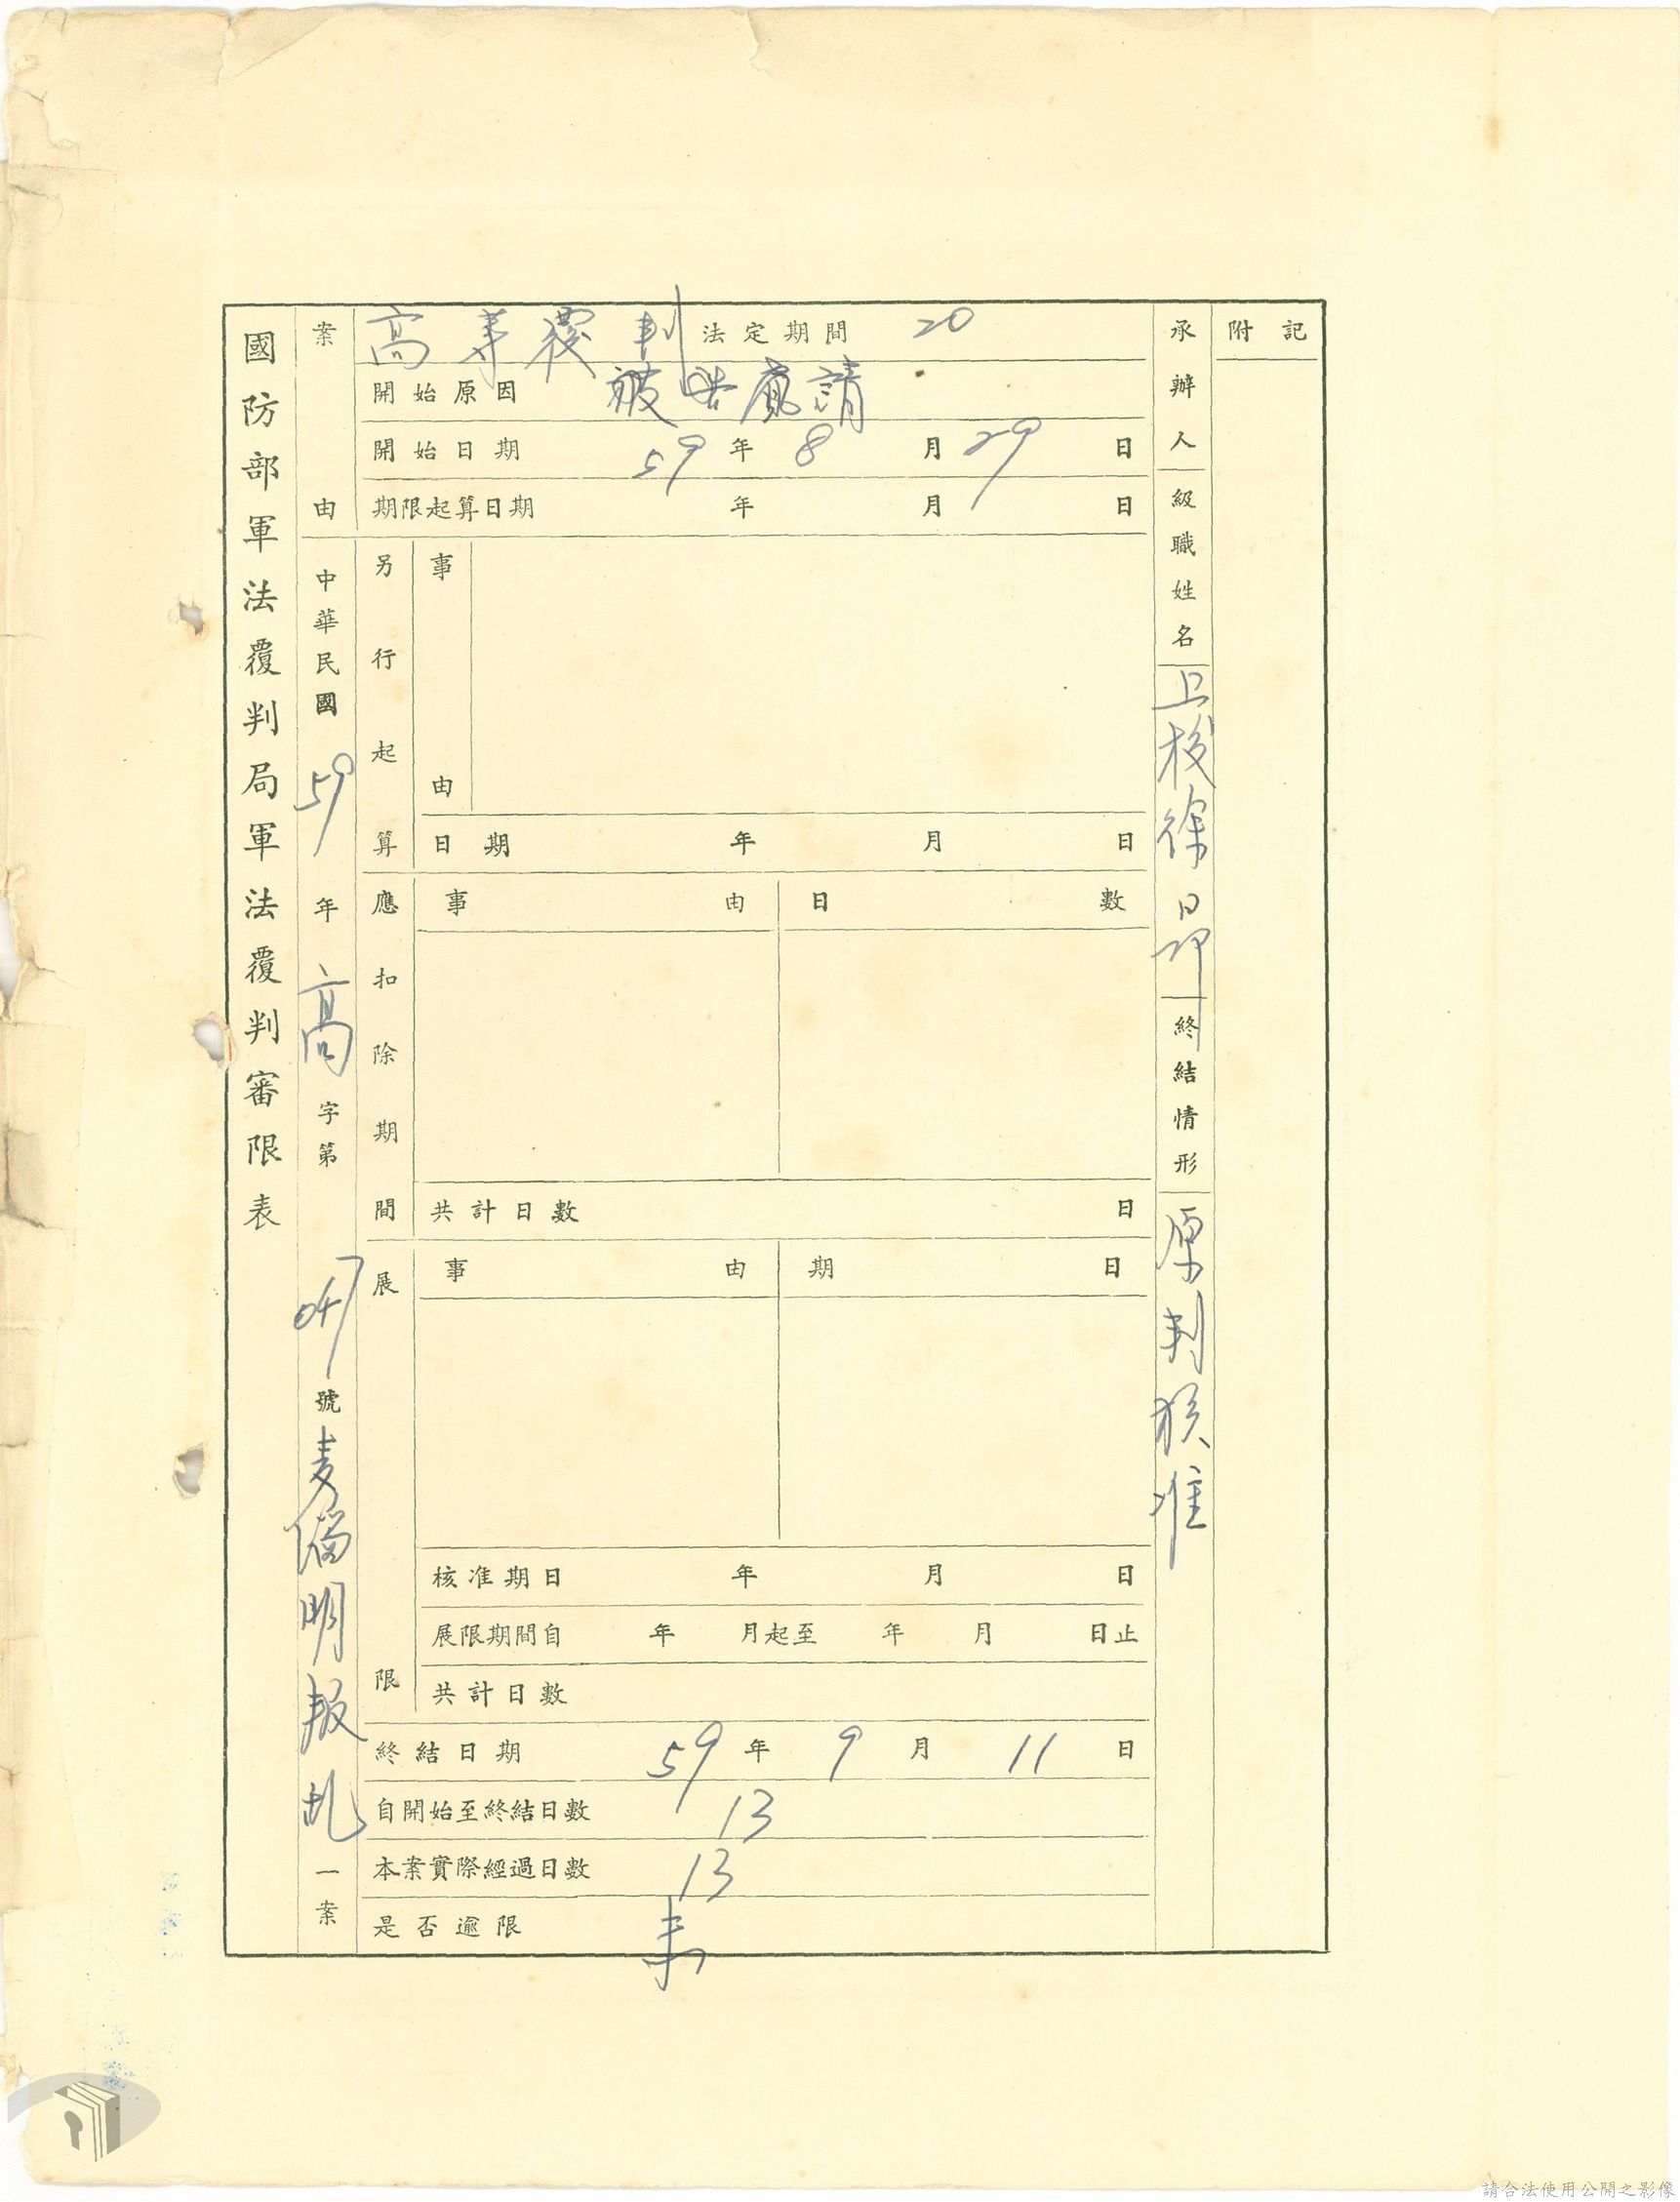 國防部軍法覆判局軍法覆判審限表
案由
中華民國59年高字第047號麦倫明叛乱一案
高等覆判 法定期間 20
開始原因 被告聲請
開始日期 59年8月29日
期限起算日期 年 月 日
另行起算
事由
日期 年 月 日
應扣除期間
事由 日數
共計日數 日
展限
事由 期日
核准期日 年 月 日
展限期間自 年 月起至 年 月 日止
共計日數
終結日期 59年9月11日
自開始至終結日數 13
本案實際經過日數 13
是否逾限 未
承辦人級職姓名 上校徐
終結情形 原判核准
附記
請合法使用公開之影像